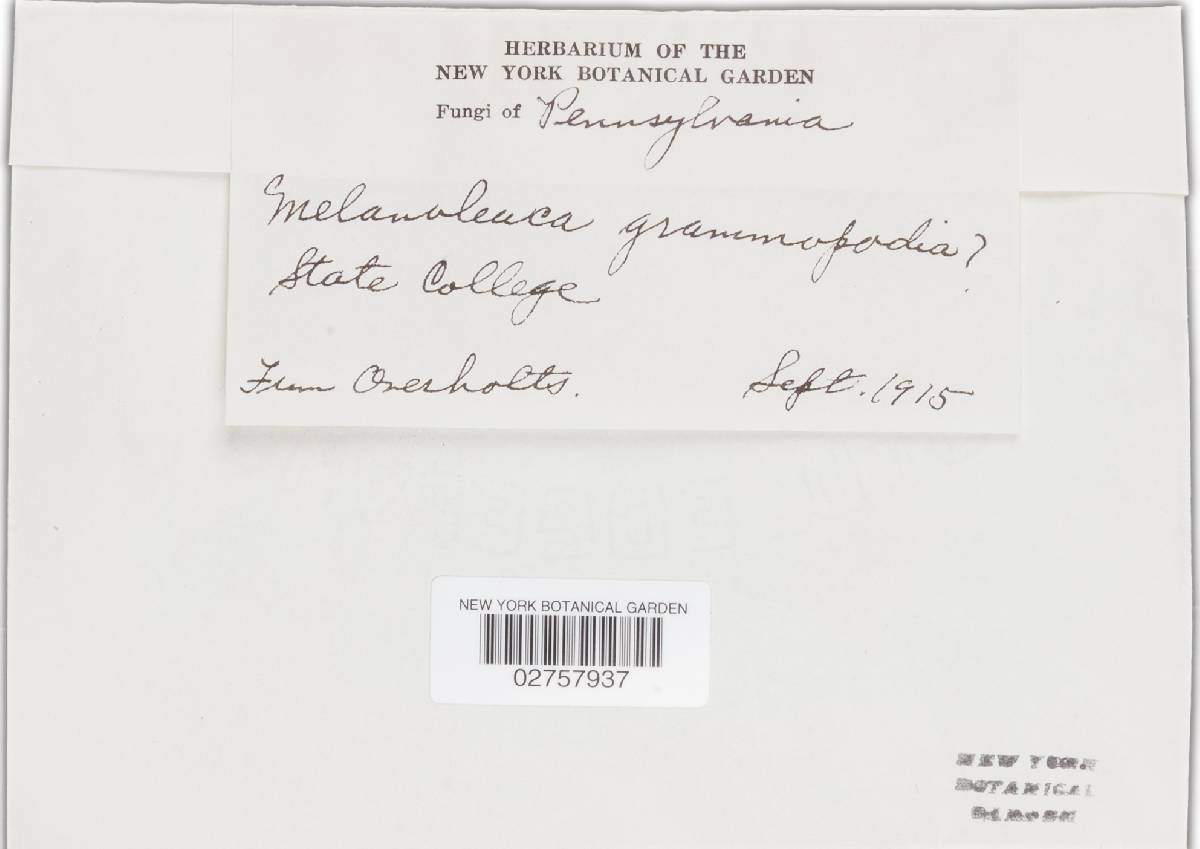 HERBARIUM OF THE
NEW YORK BOTANICAL GARDEN
Fungi of Pennsylvania
Melanoleuca grammopodia?
State College
From Overholts. Sept. 1915
NEW YORK BOTANICAL GARDEN
02757937
NEW YORK
BOTANICAL